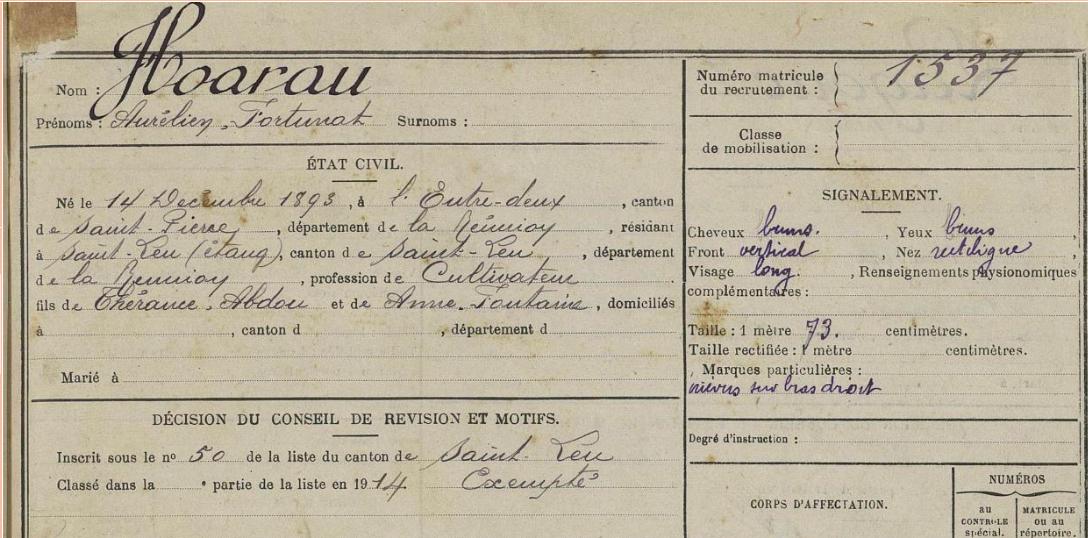 Nom : Hoarau
Prénoms : Aurélien, Fortunat Surnoms :
ÉTAT CIVIL.
Né le 14 Décembre 1893, à l'Entre-deux, canton
de Saint-Pierre, département de la Réunion, résidant
à Saint-Leu (étang), canton de Saint-Leu, département
de la Réunion, profession de Cultivateur
fils de Thérance, Abdou et de Anne Fontaine, domiciliés
à , canton d , département d
Marié à
DÉCISION DU CONSEIL DE REVISION ET MOTIFS.
Inscrit sous le nº 50 de la liste du canton de Saint-Leu
Classé dans la • partie de la liste en 1914 Exempté
Numéro matricule
du recrutement : 1537
Classe
de mobilisation :
SIGNALEMENT.
Cheveux bruns. , Yeux bruns ,
Front vertical , Nez rectiligne ,
Visage long. , Renseignements physionomiques
complémentaires :
Taille : 1 mètre 73. centimètres.
Taille rectifiée : 1 mètre centimètres.
Marques particulières :
nævus sur bras droit
Degré d'instruction :
CORPS D'AFFECTATION.
NUMÉROS
au
CONTROLE
spécial.
MATRICULE
ou au
répertoire.